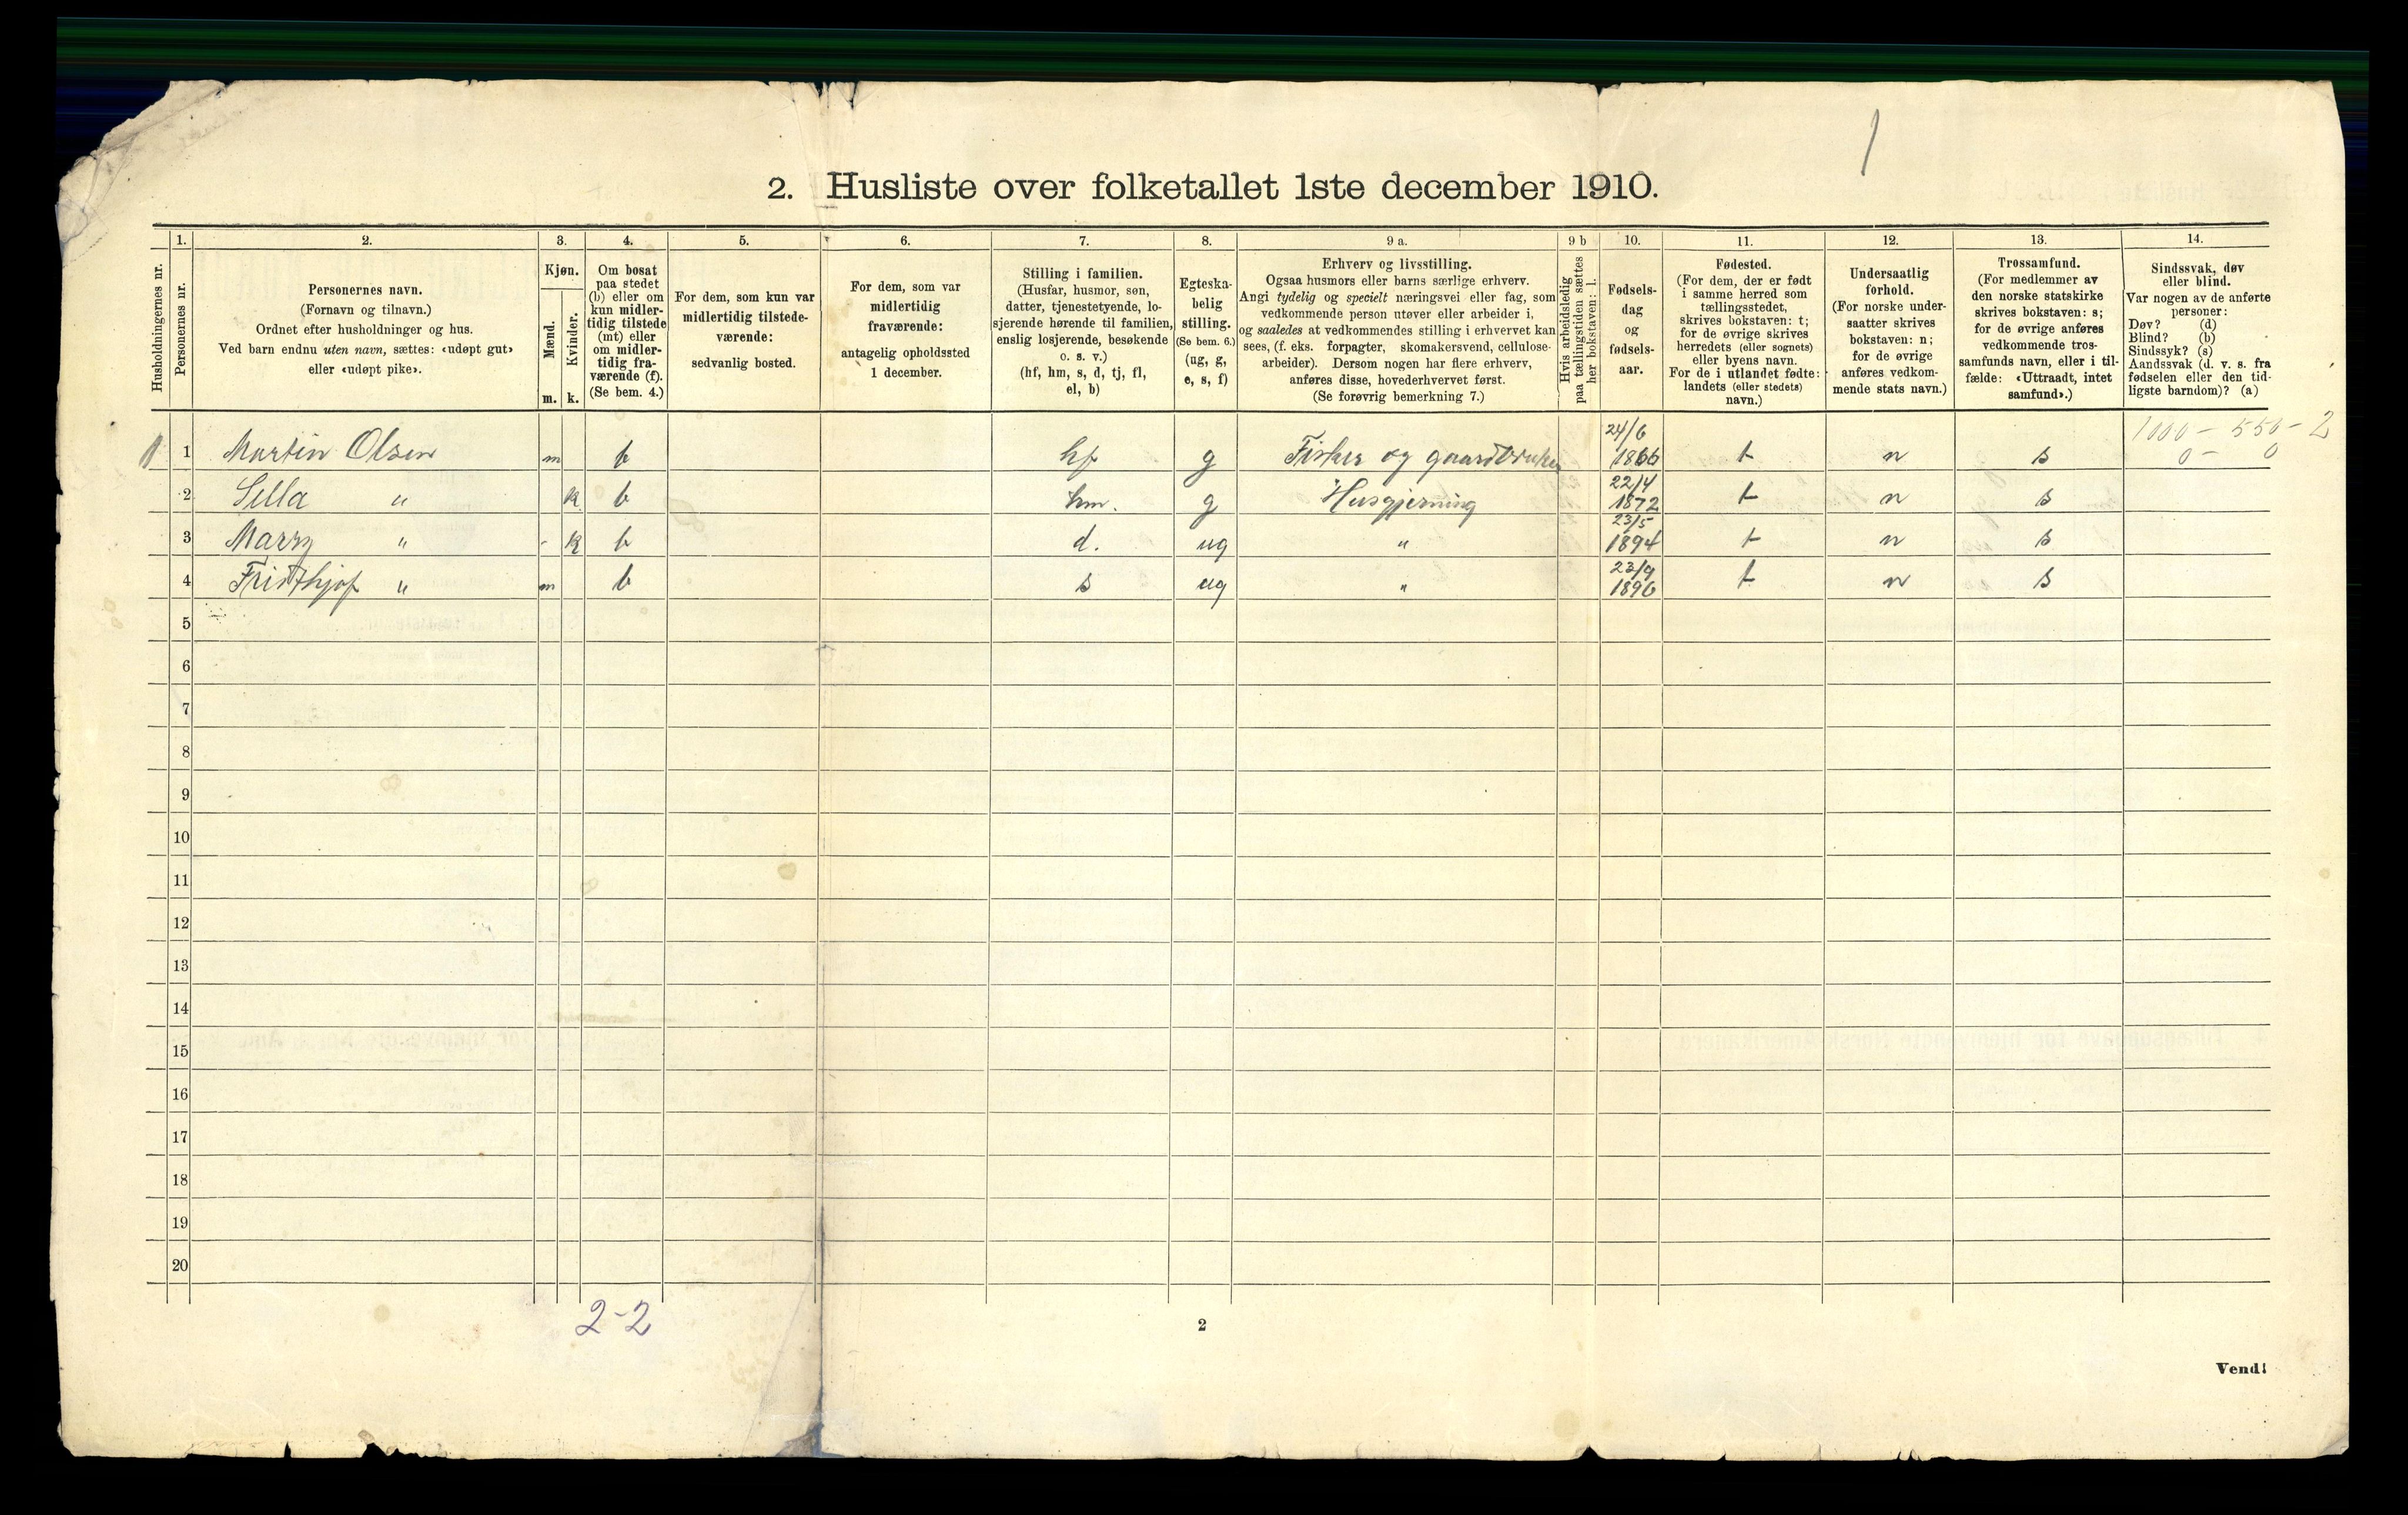 1
2. Husliste over folketallet 1ste december 1910.
Husholdningernes nr.
1.
Personernes nr.
2.
Personernes navn.
(Fornavn og tilnavn.)
Ordnet efter husholdninger og hus.
Ved barn endnu uten navn, sættes: «udøpt gut»
eller «udøpt pike».
3.
Kjøn.
Mænd.
Kvinder.
m. k.
4.
Om bosat
paa stedet
(b) eller om
kun midler-
tidig tilstede
(mt) eller
om midler-
tidig fra-
værende (f).
(Se bem. 4.)
5.
For dem, som kun var
midlertidig tilstede-
værende:
sedvanlig bosted.
6.
For dem, som var
midlertidig
fraværende:
antagelig opholdssted
1 december.
7.
Stilling i familien.
(Husfar, husmor, søn,
datter, tjenestetyende, lo-
sjerende hørende til familien,
enslig losjerende, besøkende
o. s. v.)
(hf, hm, s, d, tj, fl,
el, b)
8.
Egteska-
belig
stilling.
(Se bem. 6.)
(ug, g,
e, s, f)
9 a.
Erhverv og livsstilling.
Ogsaa husmors eller barns særlige erhverv.
Angi tydelig og specielt næringsvei eller fag, som
vedkommende person utøver eller arbeider i,
og saaledes at vedkommendes stilling i erhvervet kan
sees, (f. eks. forpagter, skomakersvend, cellulose-
arbeider). Dersom nogen har flere erhverv,
anføres disse, hovederhvervet først.
(Se forøvrig bemerkning 7.)
9 b
Hvis arbeidsledig
paa tællingstiden sættes
her bokstaven: l.
10.
Fødsels-
dag
og
fødsels-
aar.
11.
Fødested.
(For dem, der er født
i samme herred som
tællingsstedet,
skrives bokstaven: t;
for de øvrige skrives
herredets (eller sognets)
eller byens navn.
For de i utlandet fødte:
landets (eller stedets)
navn.)
12.
Undersaatlig
forhold.
(For norske under-
saatter skrives
bokstaven: n;
for de øvrige
anføres vedkom-
mende stats navn.)
13.
Trossamfund.
(For medlemmer av
den norske statskirke
skrives bokstaven: s;
for de øvrige anføres
vedkommende tros-
samfunds navn, eller i til-
fælde: «Uttraadt, intet
samfund».)
14.
Sindssvak, døv
eller blind.
Var nogen av de anførte
personer:
Døv? (d)
Blind? (b)
Sindssyk? (s)
Aandssvak (d. v. s. fra
fødselen eller den tid-
ligste barndom)? (a)
1000 - 550 - 2
0 - 0
1 Martin Olsen m b hf g Fisker og gaardbruker 24/6 1866 t n s
2 Sella " k b hm. g Husgjerning 22/4 1872 t n s
3 Marry " - k b d. ug " 23/5 1894 t n s
4 Fridthjof " m b s ug " 23/9 1896 t n s
5
6
7
8
9
10
11
12
13
14
15
16
17
18
19
20
2-2
2
Vend!